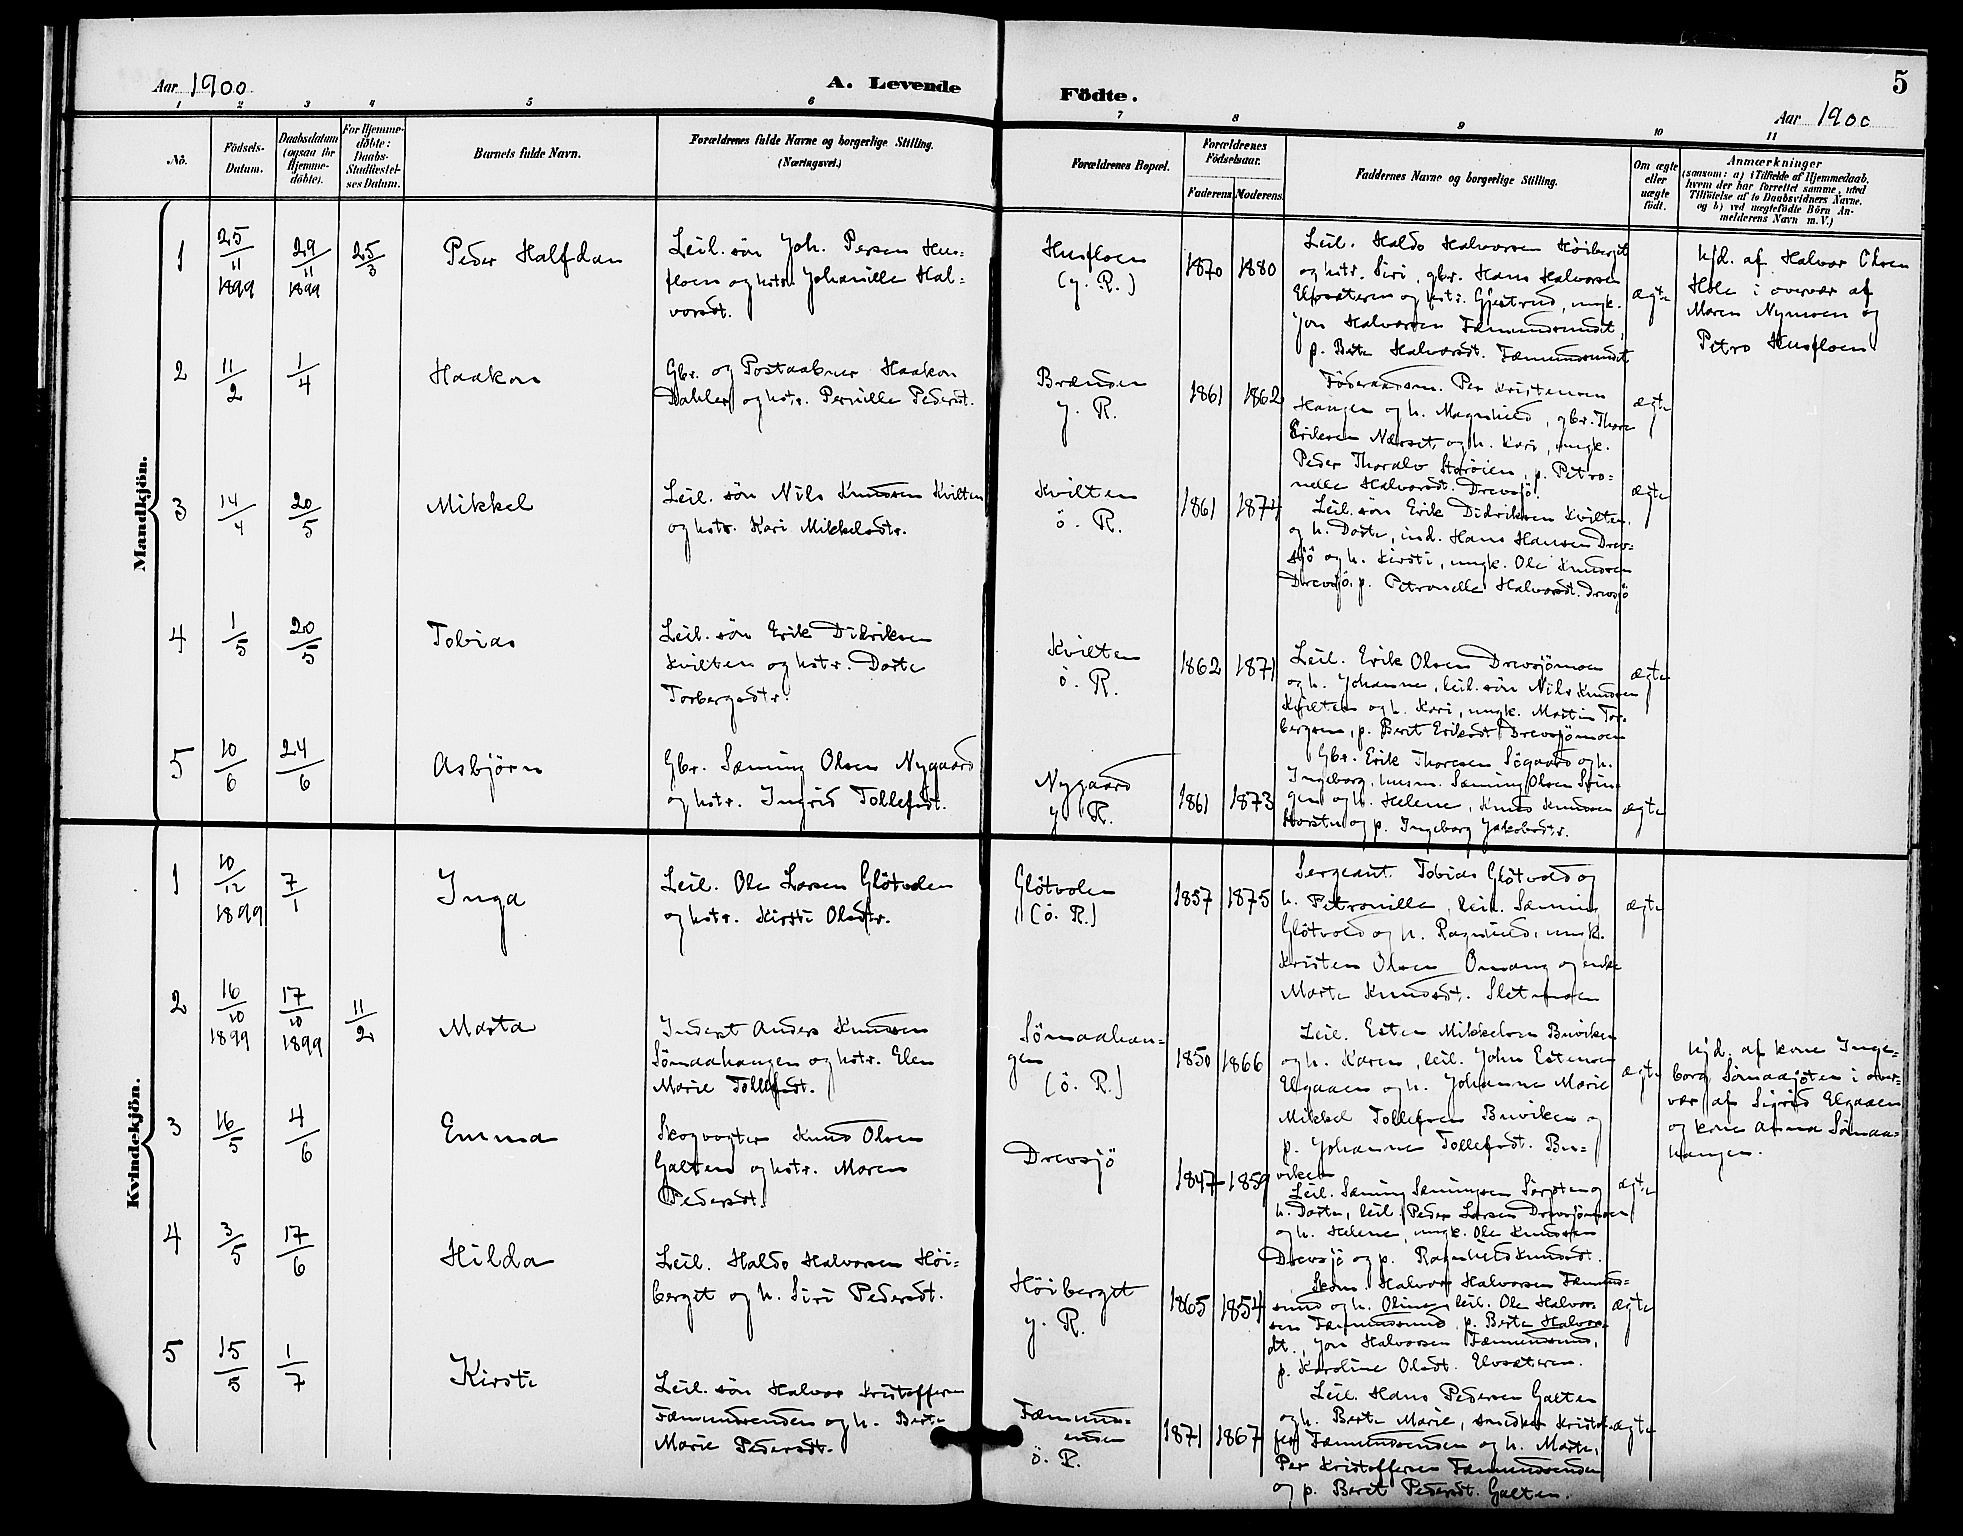 5
Aar 1900
A. Levende Födte.
Aar 1900
1 2 3 4 5 6 7 8 9 10 11
No.
Födsels-
Datum.
Daabsdatum
(ogsaa for
Hjemme-
döbte).
For Hjemme-
döbte:
Daabs-
Stadfæstel-
ses Datum.
Barnets fulde Navn.
Forældrenes fulde Navne og borgerlige Stilling.
(Næringsvei.)
Forældrenes Bopæl.
Forældrenes
Födselsaar.
Faderens
Moderens
Faddernes Navne og borgerlige Stilling.
Om ægte
eller
uægte
födt.
Anmærkninger
(saasom: a) i Tilfælde af Hjemmedaab,
hvem der har forrettet samme, med
Tilföielse af to Daabsvidners Navne.
og b) ved uægtefödte Börn An-
melderens Navn m. V.)
Mandkjön.
1
25/11 1899
29/11 1899
25/3
Peder Halfdan
Leil. sön Joh. Persen Hus-
floen og hstr. Johanille Hal-
vorsdt.
Husfloen
(y. R.)
1870 1880
Leil. Haldo Halvorsen Höiberget
og hstr. Siri, gbr. Hans Halvorsen
Elvsæteren og hstr. Gjertrud, ungk.
Jon Halvorsen Fæmundsundet,
p. Berte Halvorsdt. Fæmundsundet
ægte
Hjd. af Halvor Olsen
Hole i overvær af
Maren Nymoen og
Petro Husfloen
2
11/2
1/4
Haakon
Gbr. og Postaabner Haakon
Dahlen og hstr. Pernille Pedersdt.
Brænden
y. R.
1861 1862
Föderaadsm. Per Kristensen
Haugen og h. Magnhild, gbr. Thore
Eriksen Nærset, og h. Kari, ungk.
Peder Thoralv Storöien, p. Petro-
nelle Halvorsdt. Drevsjö.
ægte
3
14/4
20/5
Mikkel
Leil. sön Nils Knudsen Kvilten
og hstr. Kari Mikkelsdtr.
Kvilten
ö. R.
1861 1874
Leil. sön Erik Didriksen Kvilten
og h. Dorte, ind. Hans Hansen Drev-
sjö og h. Kirsti, ungk. Ole Knudsen
Drevsjö, p. Petronelle Halvorsdt. Drevsjö
ægte
4
1/5
20/5
Tobias
Leil. sön Erik Didriksen
Kvilten og hstr. Dorte
Torbergsdtr.
Kvilten
ö. R.
1862 1871
Leil. Erik Olsen Drevsjömoen
og h. Johanne, leil. sön Nils Knudsen
Kvilten og h. Kari, ungk. Martin Tor-
bergsen, p. Berit Eriksdt. Drevsjömoen
ægte
5
10/6
24/6
Asbjörn
Gbr. Sæming Olsen Nygaard
og hstr. Ingrid Tollefsdt.
Nygaard
y. R.
1861 1873
Gbr. Erik Thoresen Sögaard og h.
Ingeborg, husm. Sæming Olsen
og h. Helene, Knud Knudsen
og p. Ingeborg Jakobsdtr.
ægte
Kvindekjön.
1
10/12 1899
7/1
Inga
Leil. Ole Larsen Glötvolen
og hstr. Kirsti Olsdtr.
Glötvolen
(ö. R.)
1857 1875
Sergeant Tobias Glötvold og
h. Petronille, leil. Sæming
Glötvold og h. Ragnhild, ungk.
Kristen Olsen Omang og enke
Marte Knudsdt. Sletmoen
ægte
2
16/10 1899
17/10 1899
11/2
Marta
Inderst Anders Knudsen
Sömaahaugen og hstr. Elen
Marie Tollefsdt.
Sömaahau-
gen
(ö. R.)
1850 1866
Leil. Esten Mikkelsen Buviken
og h. Karen, leil. John Estensen
Elgaaen og h. Johanne Marie
Mikkel Tollefsen Buviken og
p. Johanne Tollefsdt. Bu-
viken
ægte
Hjd. af kone Inge-
borg Sömaasjöten i over-
vær af Sigrid Elgaaen
og kone Anna Sömaa-
haugen.
3
16/5
4/6
Emma
Skogvogter Knud Olsen
Galten og hstr. Maren
Pedersdt.
Drevsjö
1847 1859
Leil. Sæming Sæmingsen Sorpten og
h. Dorte, leil. Peder Larsen Drevsjömoen
og h. Helene, ungk. Ole Knudsen
Drevsjö og p. Ragnhild Knudsdt.
ægte
4
3/5
17/6
Hilda
Leil. Haldo Halvorsen Höi-
berget og h. Siri Pedersdt.
Höiberget
y. R.
1865 1854
Halvor Halvorsen Fæmund-
sund og h. Oline, leil. Ole Halvor-
sen Fæmundsund, p. Berte Halvors-
dt., Jon Halvorsen Fæmundsund,
p. Karoline Olsdt. Elvsæteren.
ægte
5
15/5
1/7
Kirsti
Leil. sön Halvor Kristoffersen
Fæmundsenden og h. Berte
Marie Pedersdt.
Fæmunds-
enden
ö. R.
1871 1867
Leil. Hans Pedersen Galten
og h. Berte Marie, Kristof-
fer Fæmundsenden og h. Marte,
Per Kristoffersen Fæmundsenden
og p. Berit Pedersdt. Galten.
ægte